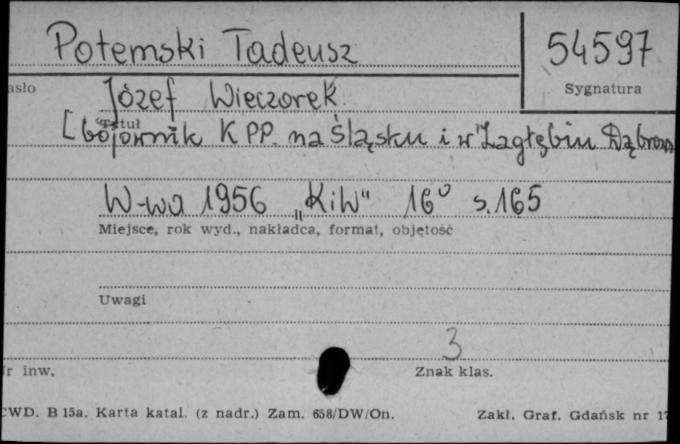 Potemski Tadeusz
54597
asło
Sygnatura
Józef Wieczorek
Tytuł
[bojownik KPP. na Śląsku i w Zagłębiu Dąbrow
W-wa 1956 „KiW" 16° s.165
Miejsce, rok wyd., nakładca, format, objętość
Uwagi
3
r inw.
Znak klas.
CWD. B 15a. Karta katal. (z nadr.) Zam. 658/DW/On.
Zakł. Graf. Gdańsk nr 1